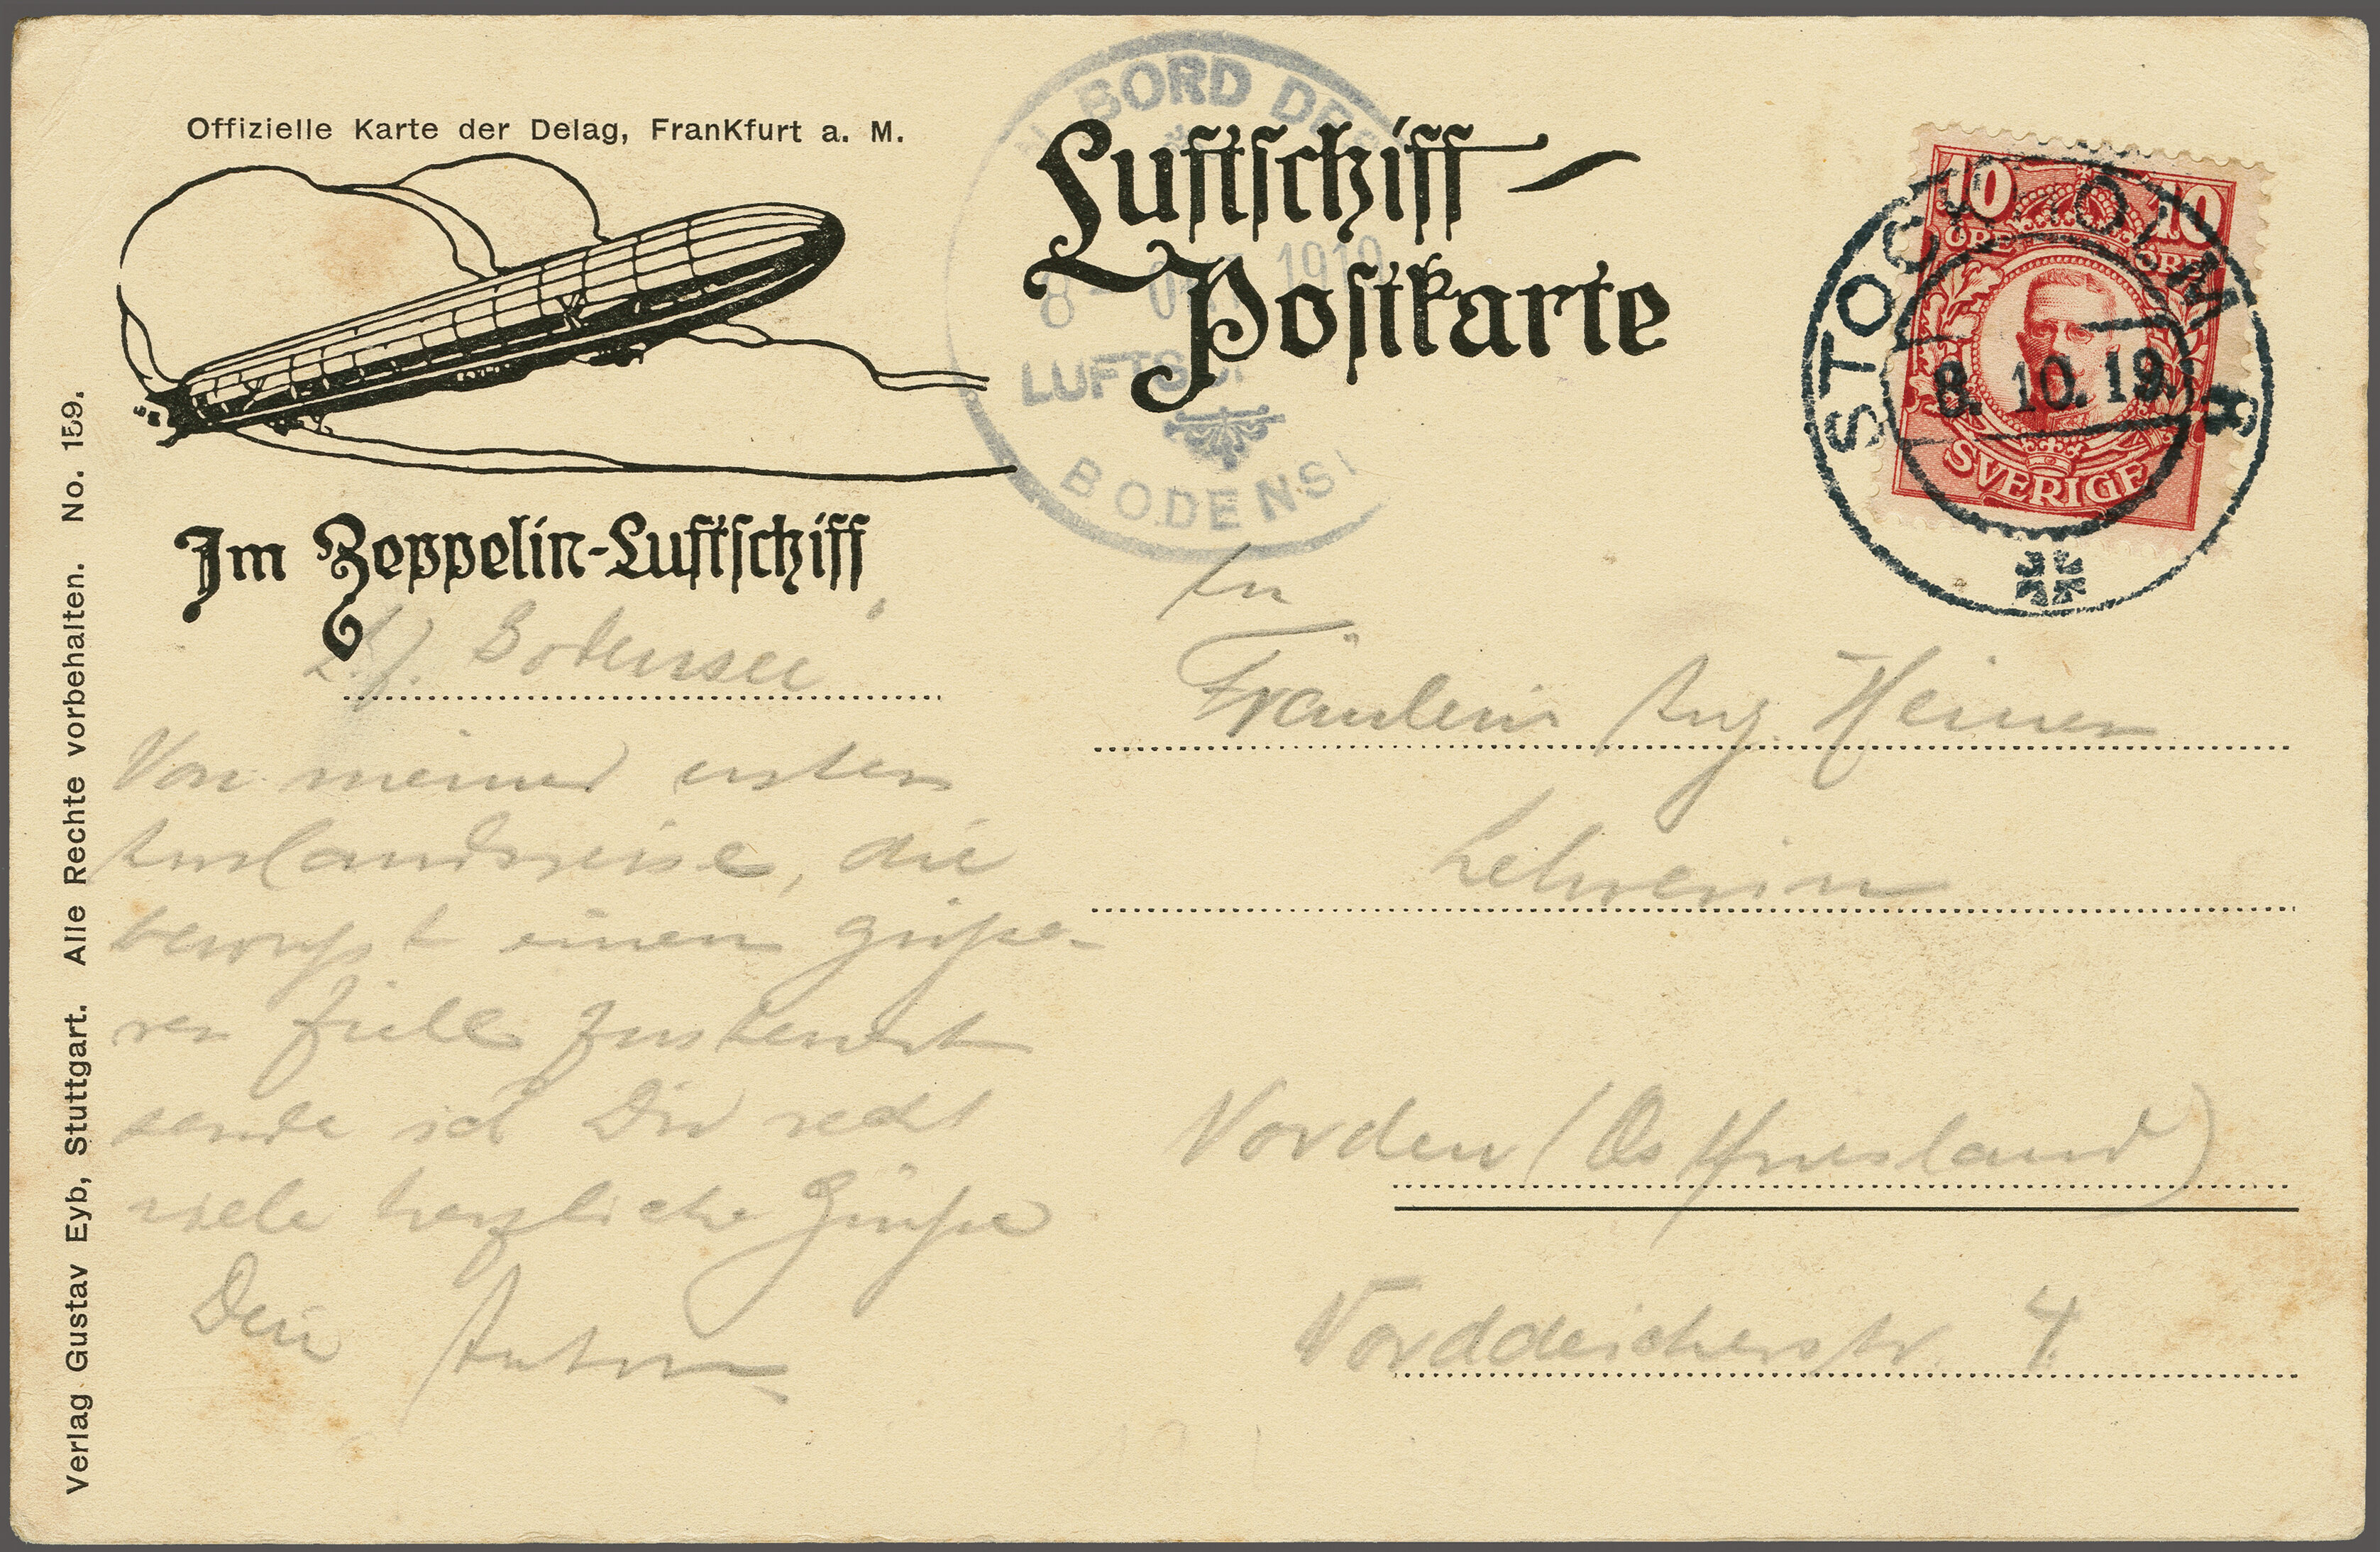 Offizielle Karte der Delag, Frankfurt a. M.
Luftschiff-
Postkarte
AN BORD DES
8 - OKT 1919
LUFTSCHI
BODENS
10 10
ÖRE ÖRE
SVERIGE
STOCKHOLM
8.10.19.
Im Zeppelin-Luftschiff
L.J. Bodensee
Von meiner ersten
Auslandsreise, die
bewusst einem grösse-
ren Ziele zusteuert
sende ich Dir recht
viele herzliche Grüsse
Dein Anton
An
Fräulein Aug. Heinen
Lehrerin
Norden (Ostfriesland)
Norddeicherstr. 4.
Verlag Gustav Eyb, Stuttgart. Alle Rechte vorbehalten. No. 159.